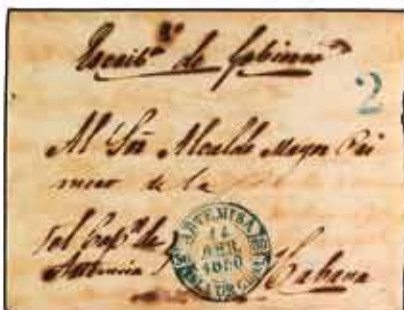 Escrib.ª de Gobierno
2
Al Sōr Alcalde Mayor Pri
mero de la
del Cap.ⁿ de
ARTEMISA
14
ABR
1860
Habana